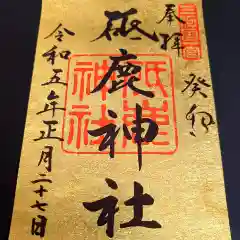 奉拝
癸卯
砥鹿神社
砥鹿
神社
令和五年正月二十七日